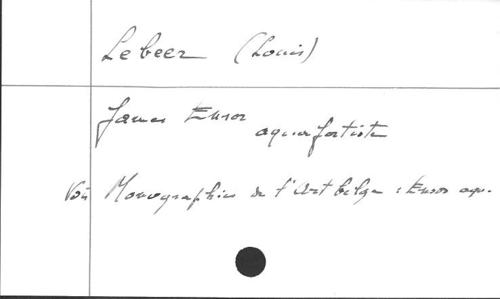 Lebeer (Louis)
James Ensor
aquafortiste
Voir Monographies de l'Art belge : Ensor aqu.